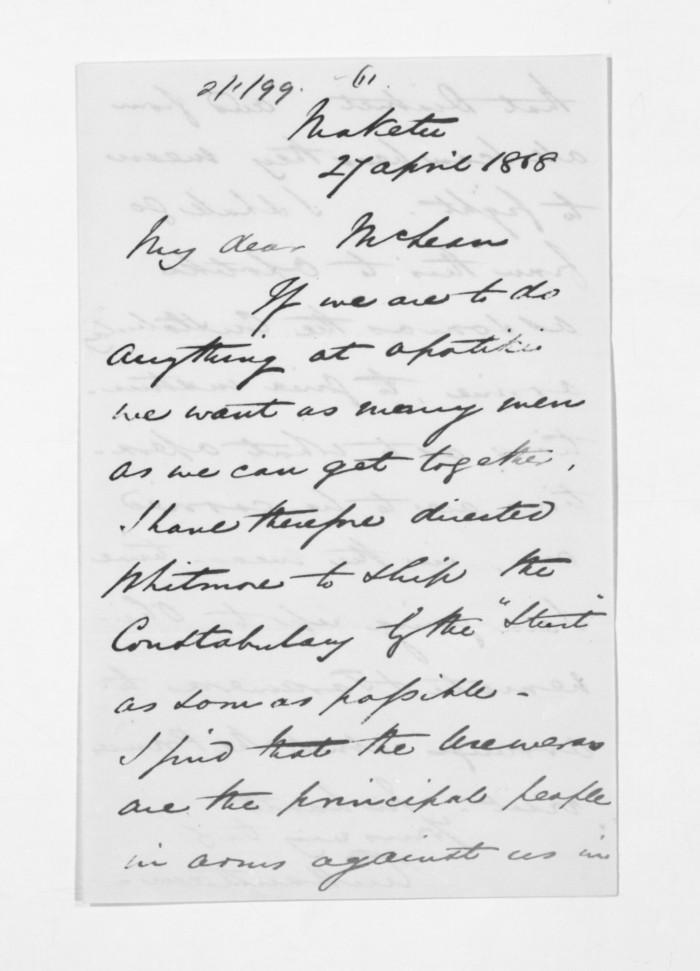 2/1/99. 
Maketu
27 April 1868
My dear McLean
If we are to do
anything at Opotiki
we want as many men
as we can get together,
I have therefore directed
Whitmore to ship the
Constabulary by the "Sturt"
as soon as possible -
I find that the Ureweras
are the principal people
in arms against us in